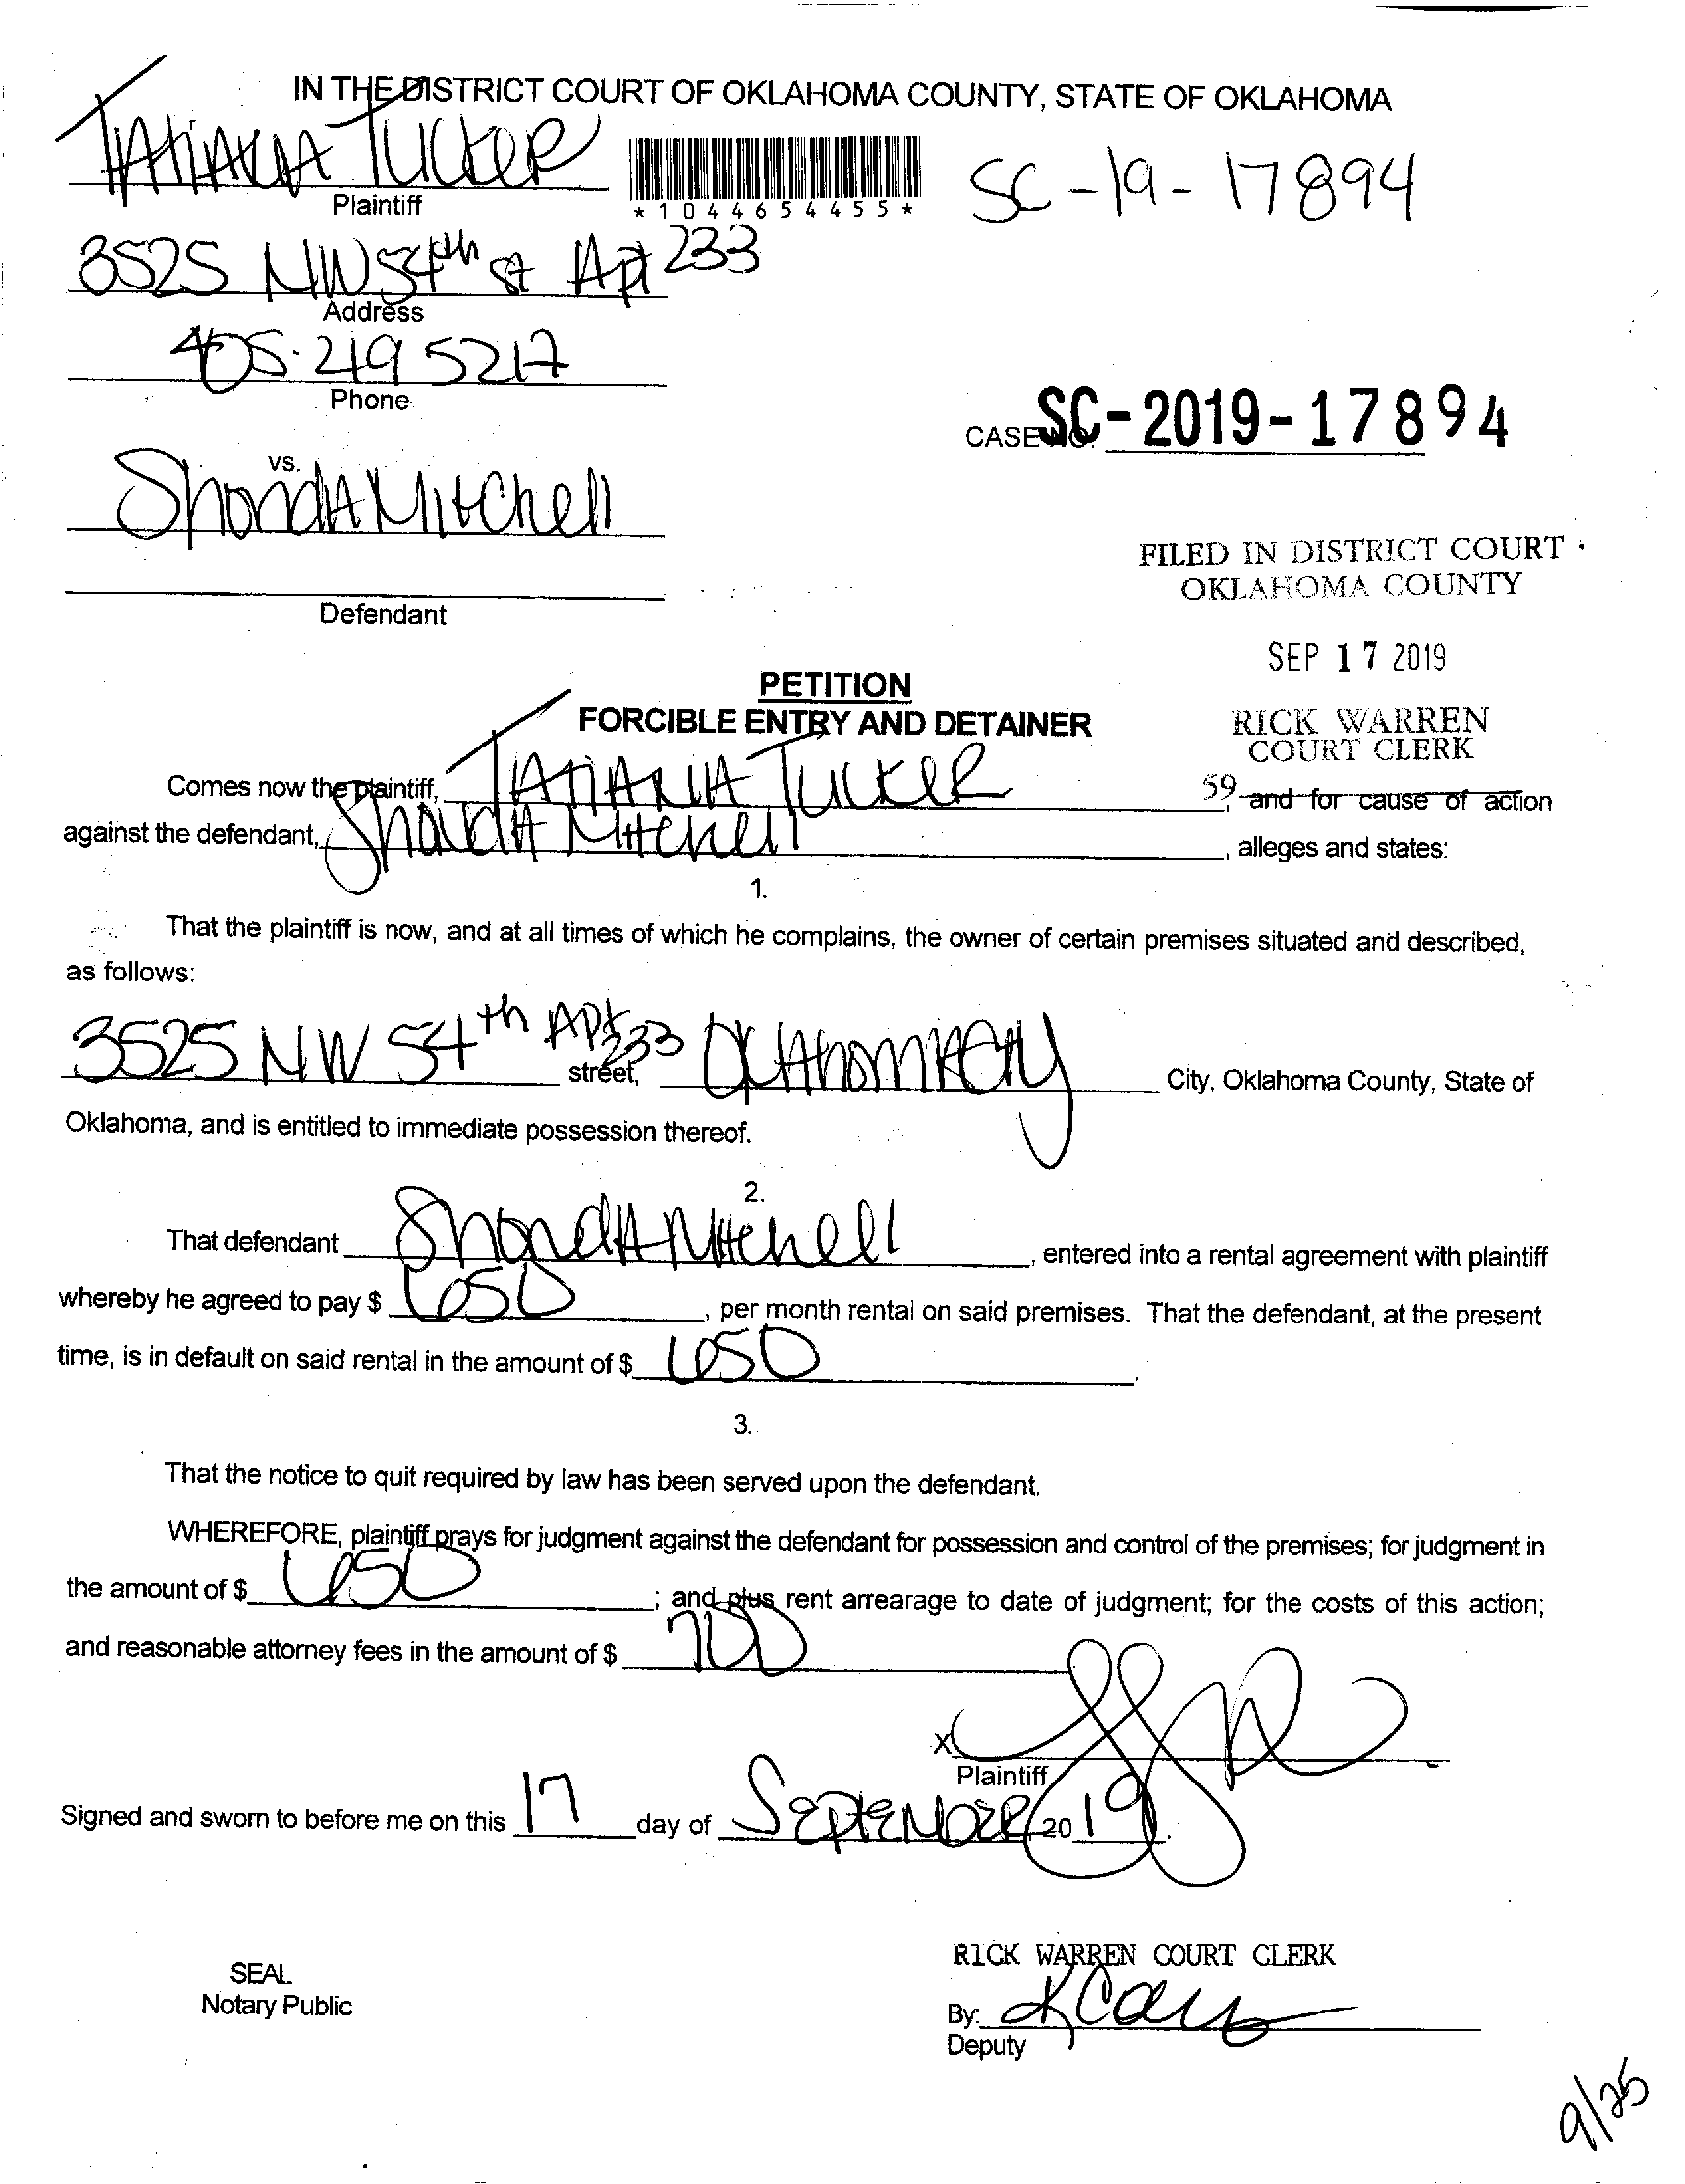 IN THE DISTRICT COURT OF OKLAHOMA COUNTY, STATE OF OKLAHOMA
TATIANA TUCKER
Plaintiff
*1044654455*
SC-19-17894
3525 NW 54th st Apt 233
Address
405.219 5217
Phone
CASE NO. SC-2019-17894
vs.
ShondA Mitchell
Defendant
FILED IN DISTRICT COURT
OKLAHOMA COUNTY
SEP 17 2019
RICK WARREN
COURT CLERK
59
PETITION
FORCIBLE ENTRY AND DETAINER
Comes now the plaintiff, TATIANA TUCKER, and for cause of action
against the defendant, ShondA Mitchell, alleges and states:
1.
That the plaintiff is now, and at all times of which he complains, the owner of certain premises situated and described,
as follows:
3525 NW 54th Apt 233 street, OklAhomA City City, Oklahoma County, State of
Oklahoma, and is entitled to immediate possession thereof.
2.
That defendant ShondA Mitchell, entered into a rental agreement with plaintiff
whereby he agreed to pay $ 650, per month rental on said premises. That the defendant, at the present
time, is in default on said rental in the amount of $ 650.
3.
That the notice to quit required by law has been served upon the defendant.
WHEREFORE, plaintiff prays for judgment against the defendant for possession and control of the premises; for judgment in
the amount of $ 650; and plus rent arrearage to date of judgment; for the costs of this action;
and reasonable attorney fees in the amount of $ 700
X
Plaintiff
Signed and sworn to before me on this 17 day of SEPTEMBER 2019.
SEAL
Notary Public
RICK WARREN COURT CLERK
By:
Deputy
9/25